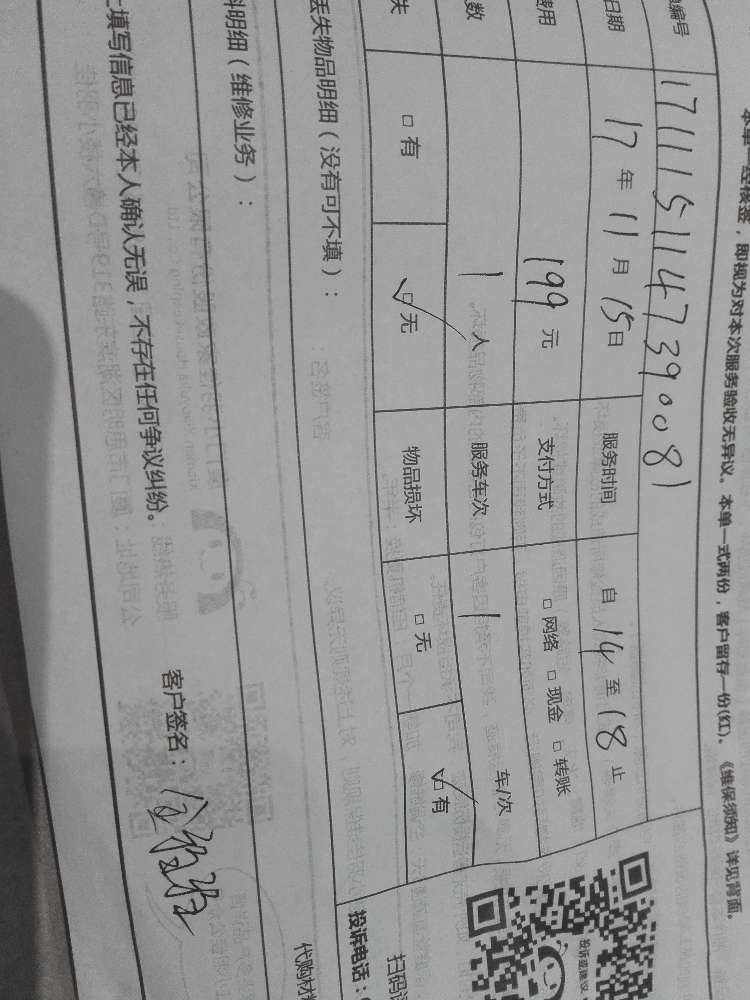 本单一经核签，即视为对本次服务验收无异议。本单一式两份，客户留存一份(红)。《维保须知》详见背面。
编号 171115114739081
日期 17年11月15日 服务时间 自14至18止
费用 199元 支付方式 □网络 □现金 □转账
数 1人 服务车次 1 车/次
失 □有 ☑无 物品损坏 □无 ☑有
丢失物品明细（没有可不填）：
料明细（维修业务）：
填写信息已经本人确认无误，不存在任何争议纠纷。
客户签名：
投诉或建议
扫码
投诉电话：
代购材